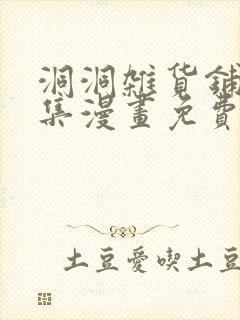 洞洞雜貨鋪
集漫畫免費
土豆愛喫土豆